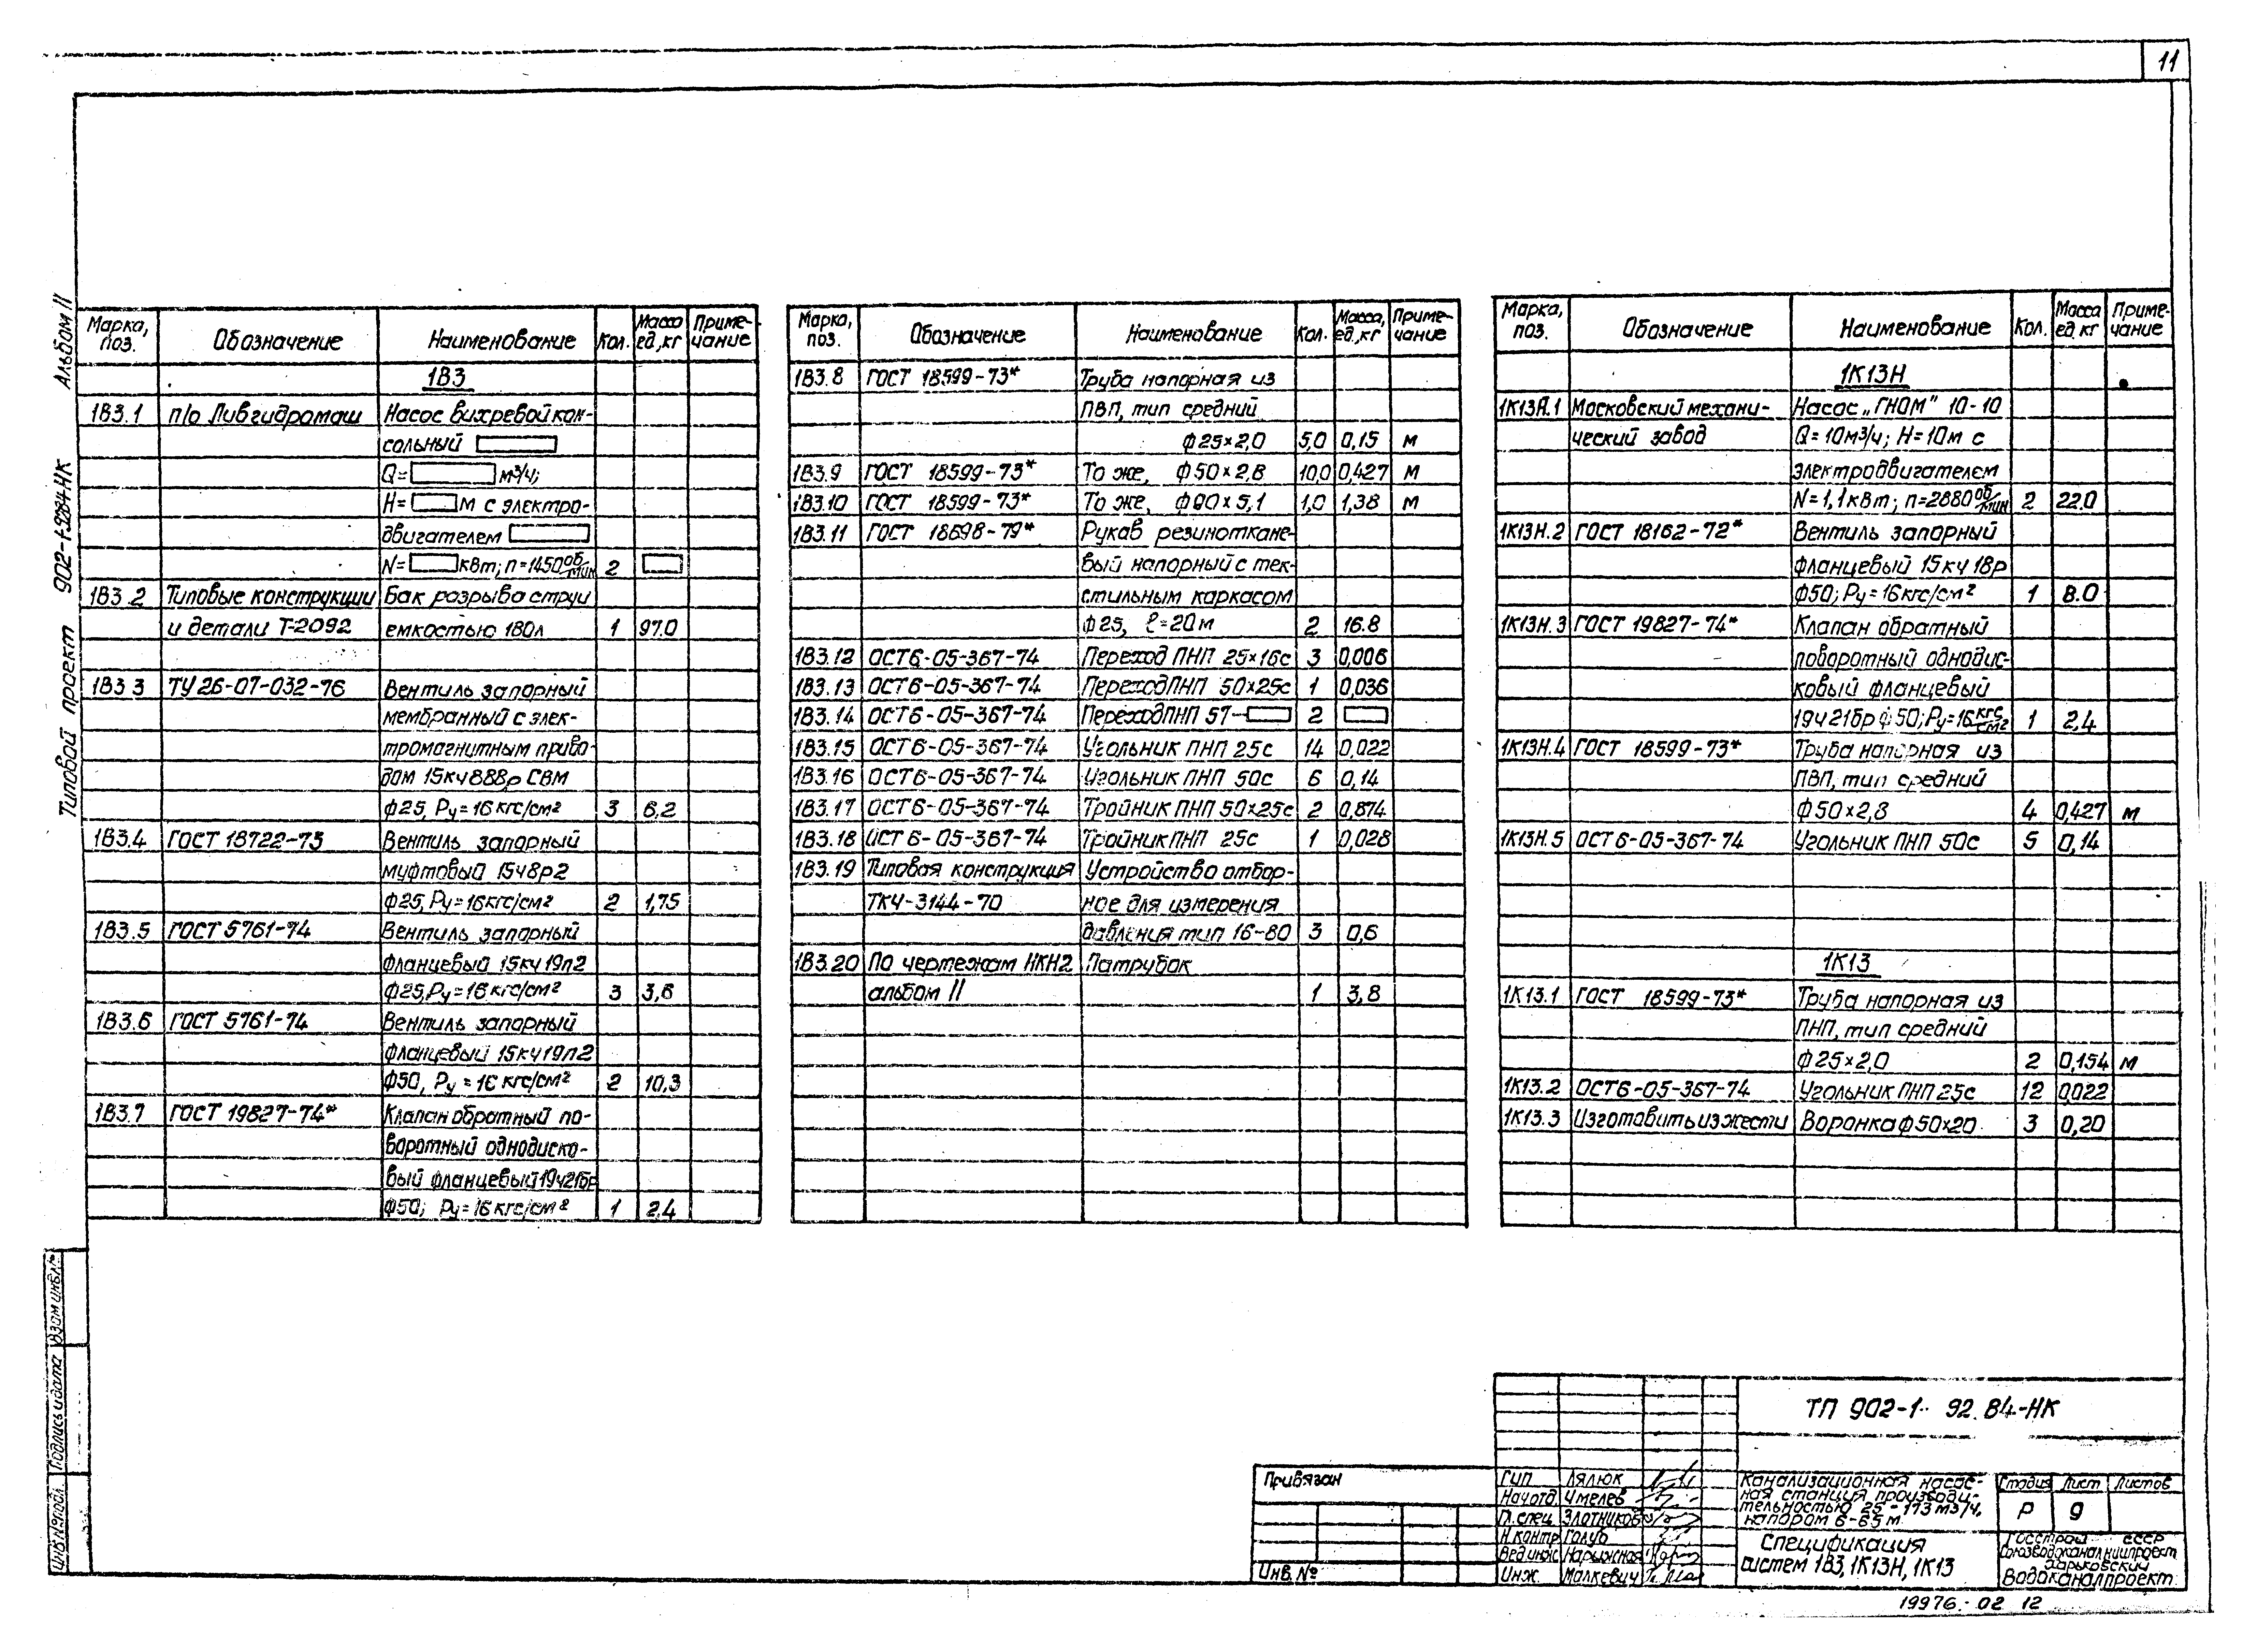 11
Типовой проект 902-1-92.84-НК Альбом II
Марка, поз. Обозначение Наименование Кол. Масса ед, кг Приме-чание
1В3
1В3.1 п/о Ливгидромаш Насос вихревой кон-
сольный
Q= м³/ч;
H= м с электро-
двигателем
N= кВт; n=1450 об/мин 2
1В3.2 Типовые конструкции Бак разрыва струи
и детали Т-2092 емкостью 180л 1 97.0
1В3 3 ТУ 26-07-032-76 Вентиль запорный
мембранный с элек-
тромагнитным приво-
дом 15кч888р СВМ
ф25, Ру=16 кгс/см² 3 6,2
1В3.4 ГОСТ 18722-73 Вентиль запорный
муфтовый 15ч8р2
ф25, Ру=16кгс/см² 2 1,75
1В3.5 ГОСТ 5761-74 Вентиль запорный
фланцевый 15кч19п2
ф25, Ру=16 кгс/см² 3 3,6
1В3.6 ГОСТ 5761-74 Вентиль запорный
фланцевый 15кч19п2
ф50, Ру=16 кгс/см² 2 10,3
1В3.7 ГОСТ 19827-74* Клапан обратный по-
воротный однодиско-
вый фланцевый 19ч21бр
ф50; Ру=16 кгс/см² 1 2,4
Марка, поз. Обозначение Наименование Кол. Масса, ед., кг Приме-чание
1В3.8 ГОСТ 18599-73* Труба напорная из
ПВП, тип средний
ф25×2,0 5,0 0,15 м
1В3.9 ГОСТ 18599-73* То же, ф50×2,8 10,0 0,427 м
1В3.10 ГОСТ 18599-73* То же, ф90×5,1 1,0 1,38 м
1В3.11 ГОСТ 18698-79* Рукав резиноткане-
вый напорный с тек-
стильным каркасом
ф25, ℓ=20м 2 16.8
1В3.12 ОСТ6-05-367-74 Переход ПНП 25×16с 3 0,006
1В3.13 ОСТ6-05-367-74 Переход ПНП 50×25с 1 0,036
1В3.14 ОСТ6-05-367-74 Переход ПНП 57- 2
1В3.15 ОСТ6-05-367-74 Угольник ПНП 25с 14 0,022
1В3.16 ОСТ6-05-367-74 Угольник ПНП 50с 6 0,14
1В3.17 ОСТ6-05-367-74 Тройник ПНП 50×25с 2 0,874
1В3.18 ОСТ6-05-367-74 Тройник ПНП 25с 1 0,028
1В3.19 Типовая конструкция Устройство отбор-
ТКЧ-3144-70 ное для измерения
давления тип 16-80 3 0,6
1В3.20 По чертежам НКН2 Патрубок
альбом II 1 3,8
Марка, поз. Обозначение Наименование Кол. Масса ед, кг Приме-чание
1К13Н
1К13Н.1 Московский механи- Насос „ГНОМ" 10-10
ческий завод Q=10м³/ч; H=10м с
электродвигателем
N=1,1кВт; n=2880 об/мин 2 22.0
1К13Н.2 ГОСТ 18162-72* Вентиль запорный
фланцевый 15кч18р
ф50; Ру=16кгс/см² 1 8.0
1К13Н.3 ГОСТ 19827-74* Клапан обратный
поворотный однодис-
ковый фланцевый
19ч21бр ф50; Ру=16 кгс/см² 1 2,4
1К13Н.4 ГОСТ 18599-73* Труба напорная из
ПВП, тип средний
ф50×2,8 4 0,427 м
1К13Н.5 ОСТ6-05-367-74 Угольник ПНП 50с 5 0,14
1К13
1К13.1 ГОСТ 18599-73* Труба напорная из
ПНП, тип средний
ф25×2,0 2 0,154 м
1К13.2 ОСТ6-05-367-74 Угольник ПНП 25с 12 0,022
1К13.3 Изготовить из жести Воронка ф50×20 3 0,20
Инв.№подл. Подпись и дата Взам инв.№
ТП 902-1- 92.84-НК
Привязан
Инв. №
Гип Лялюк
Нач отд. Имелев
Гл. спец. Злотников
Н.контр Голуб
Вед инж Нарыжная
Инж. Малкевич
Канализационная насос-
ная станция производи-
тельностью 25-173 м3/ч,
напором 6-65 м
Стадия Лист Листов
Р 9
Спецификация
систем 1В3, 1К13Н, 1К13
Госстрой СССР
Союзводоканалниипроект
Харьковский
Водоканалпроект
19976-02 12